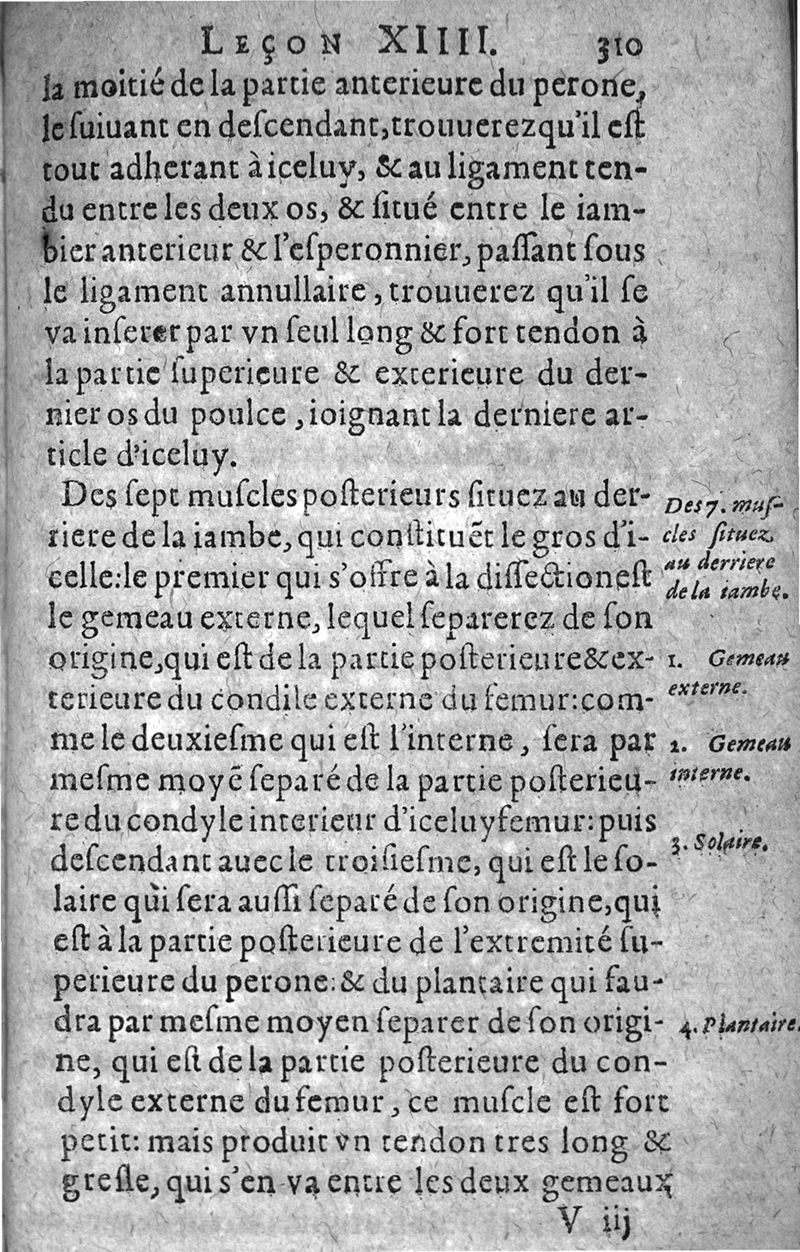 LEÇON XIIII. 310
la moitié de la partie anterieure du perone,
le suiuant en descendant, trouuerez qu'il est
tout adherant à iceluy, & au ligament ten-
du entre les deux os, & situé entre le iam-
bier anterieur & l'esperonnier, passant sous
le ligament annullaire, trouuerez qu'il se
va inserer par vn seul long & fort tendon à
la partie superieure & exterieure du der-
nier os du poulce, ioignant la derniere ar-
ticle d'iceluy.
Des sept muscles posterieurs situez au der-
riere de la iambe, qui constituẽt le gros d'i-
celle: le premier qui s'offre à la dissection est
le gemeau externe, lequel separerez de son
origine, qui est de la partie posterieure & ex-
terieure du condile externe du femur: com-
me le deuxiesme qui est l'interne, sera par
mesme moyẽ separé de la partie posterieu-
re du condyle interieur d'iceluy femur: puis
descendant auec le troisiesme, qui est le so-
laire qui sera aussi separé de son origine, qui
est à la partie posterieure de l'extremité su-
perieure du perone: & du plantaire qui fau-
dra par mesme moyen separer de son origi-
ne, qui est de la partie posterieure du con-
dyle externe du femur, ce muscle est fort
petit: mais produit vn tendon tres long &
gresle, qui s'en va entre les deux gemeaux
V iij
Des 7. mus-
cles situez
au derriere
de la iambe.
1. Gemeau
externe.
2. Gemeau
interne.
3. Solaire.
4. Plantaire.